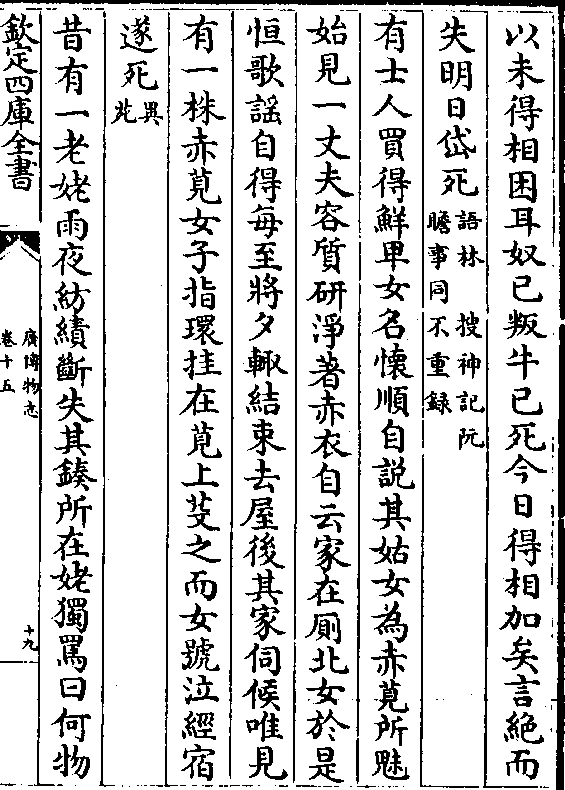 以未得相困耳奴已叛牛已死今日得相加矣言絶而
失明日岱死語林　搜神記阮
瞻事同不重録
有士人買得鮮卑女名懷順自説其姑女為赤莧所魅
始見一丈夫容質研淨著赤衣自云家在厠北女於是
恒歌謡自得每至將夕輙結束去屋後其家伺候唯見
有一株赤莧女子指環挂在莧上芟之而女號泣經宿
遂死異
苑
昔有一老姥雨夜紡績斷失其鍭所在姥獨罵曰何物
欽定四庫全書
廣博物志
卷十五
十九